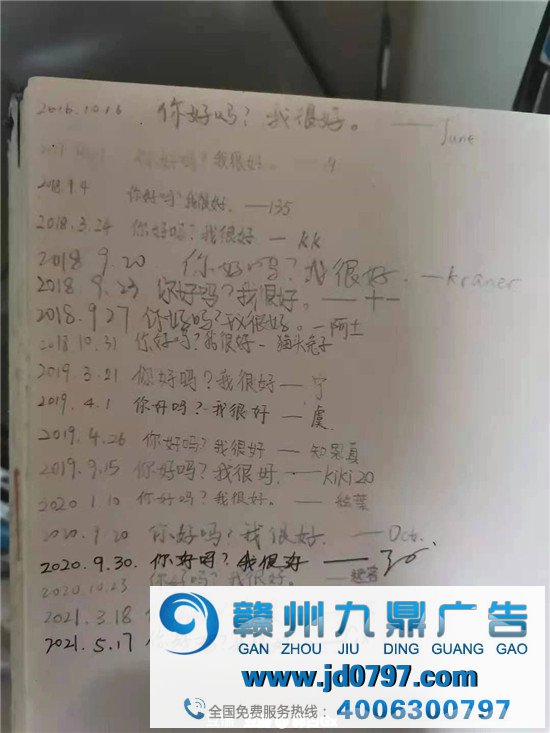 2016.10.16 你好吗？我很好。——June
你好吗？我很好。
2018.9.4 你好吗？我很好.——135
2018.3.24 你好吗？我很好 — KK
2018 9.20 你好吗？我很好.—kramer
2018 9.23 你好吗？我很好。——十一
2018.9.27 你好吗？我很好。—阿土
2018.10.31 你好吗？我很好-猫头兔子
2019.3.21 你好吗？我很好 — 宁
2019.4.1 你好吗？我很好 — 虞
2019.4.26 你好吗？我很好 — 知果夏
2019.9.15 你好吗？我很好.——kiki20
2020 1.10 你好吗？我很好。——
2020.9.20 你好吗？我很好.——Oct.
2020.9.30. 你好吗？我很好 ——
2020 10.23 你好吗？我很好。——
2021.3.18
2021.5.17
赣州九鼎广告
GAN ZHOU JIU DING GUANG GAO
www.jd0797.com
全国免费服务热线： 4006300797